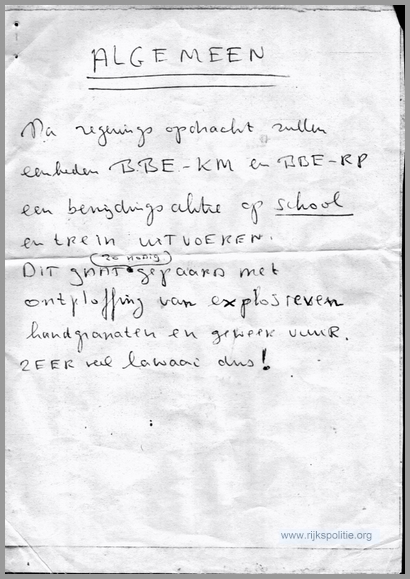 ALGEMEEN
Na regerings opdracht zullen
eenheden BBE-KM en BBE-RP
een bevrijdings aktie op school
en trein UITVOEREN.
(zo nodig)
DIT gaat gepaard met
ontploffing van explosieven
handgranaten en geweer vuur.
ZEER veel lawaai dus!
www.rijkspolitie.org